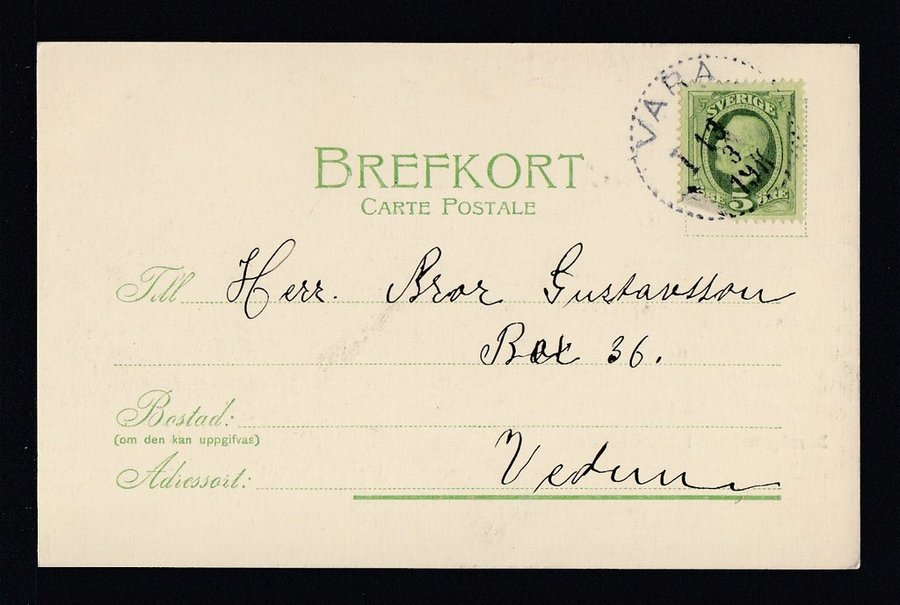 VARA
SVERIGE
BREFKORT
CARTE POSTALE
Till Herr. Bror Gustavsson
Box 36.
Bostad:
(om den kan uppgifvas)
Adressort: Vedum